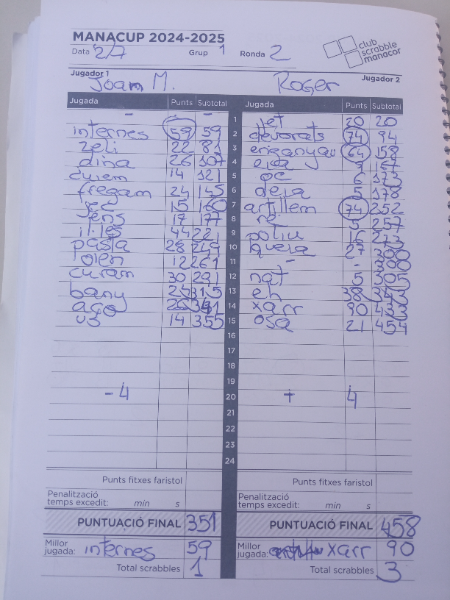 MANACUP 2024-2025
Data 2/7 Grup 1 Ronda 2
club scrabble manacor
Jugador 1 Joan M. Roger Jugador 2
Jugada Punts Subtotal Jugada Punts Subtotal
- - 1 jet 20 20
internes 59 59 2 74 94
zeli 22 81 3 enganyau 64 158
dina 26 107 4 167
14 121 5 oc 6 173
fregam 24 145 6 deia 5 178
15 160 7 artillem 74 252
17 177 8 re 5 257
il·les 44 221 9 poliu 16 273
pasta 28 249 10 27 300
olen 12 261 11 - 300
curam 30 291 12 nat 5 305
bany 24 315 13 eh 38 343
aço 26 341 14 xarr 90 433
us 14 355 15 osa 21 454
16
17
18
19
- 4 20 + 4
21
22
23
24
Punts fitxes faristol Punts fitxes faristol
Penalització temps excedit: min s Penalització temps excedit: min s
PUNTUACIÓ FINAL 351 PUNTUACIÓ FINAL 458
Millor jugada: internes 59 Millor jugada: xarr 90
Total scrabbles 1 Total scrabbles 3